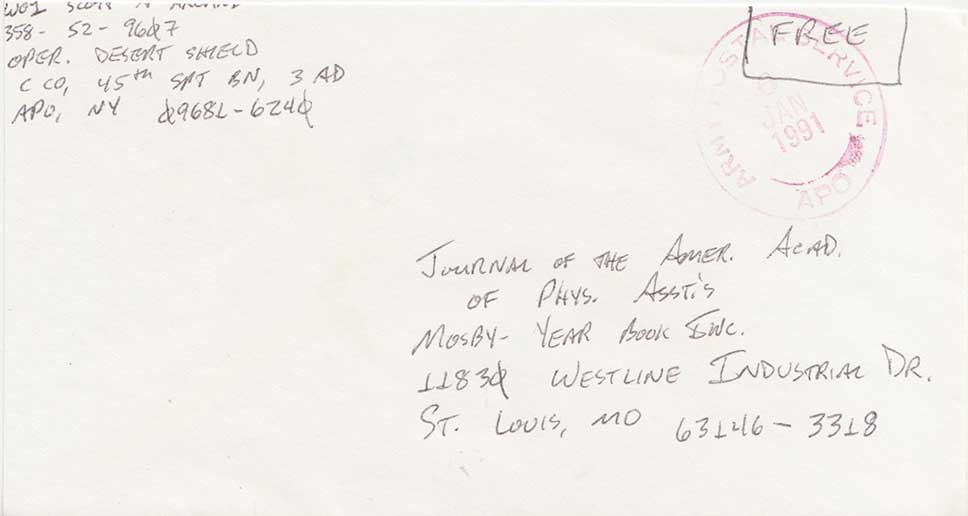 WO1 SCOTT
358-52-9607
OPER. DESERT SHIELD
C CO, 45th SPT BN, 3 AD
APO, NY 09681-6240
FREE
ARMY POSTAL SERVICE
JAN
1991
APO
JOURNAL OF THE AMER. ACAD.
OF PHYS. ASST.'S
MOSBY- YEAR BOOK INC.
11830 WESTLINE INDUSTRIAL DR.
ST. LOUIS, MO 63146-3318